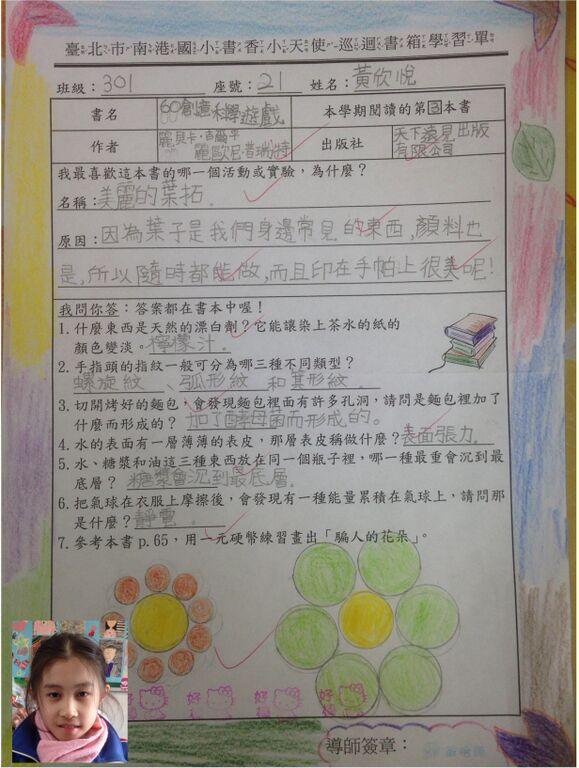 臺北市南港國小書香小天使巡迴書箱學習單
班級：301 座號：21 姓名：黃欣悅
書名 60創造科學遊戲 本學期閱讀的第3本書
作者 麗貝卡·吉爾平 麗歐尼·普瑞特 出版社 天下遠見出版有限公司
我最喜歡這本書的哪一個活動或實驗，為什麼？
名稱：美麗的葉拓。
原因：因為葉子是我們身邊常見的東西，顏料也
是，所以隨時都能做，而且印在手帕上很美呢！
我問你答：答案都在書本中喔！
1. 什麼東西是天然的漂白劑？它能讓染上茶水的紙的
顏色變淡。檸檬汁。
2. 手指頭的指紋一般可分為哪三種不同類型？
螺旋紋、弧形紋和箕形紋。
3. 切開烤好的麵包，會發現麵包裡面有許多孔洞，請問是麵包裡加了
什麼而形成的？加了酵母菌而形成的。
4. 水的表面有一層薄薄的表皮，那層表皮稱做什麼？表面張力。
5. 水、糖漿和油這三種東西放在同一個瓶子裡，哪一種最重會沉到最
底層？糖漿會沉到最底層。
6. 把氣球在衣服上摩擦後，會發現有一種能量累積在氣球上，請問那
是什麼？靜電。
7. 參考本書 p.65，用一元硬幣練習畫出「騙人的花朵」。
好棒 好棒 好棒 好棒
導師簽章：